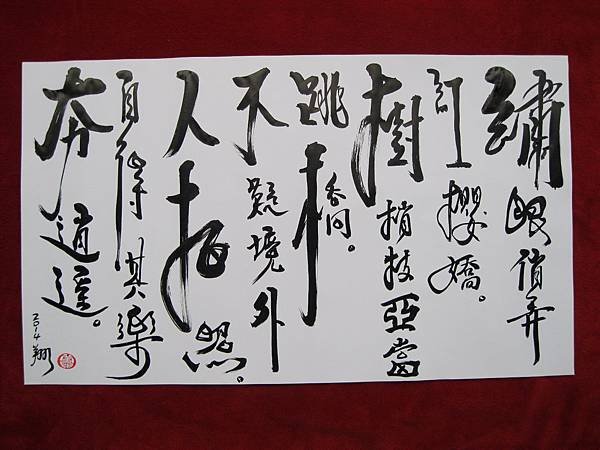 繡眼俏弄
紅櫻嬌。
樹梢枝亞當
跳橋。
不境外
人拍照。
自得其樂
夯逍遙。
2014 翔